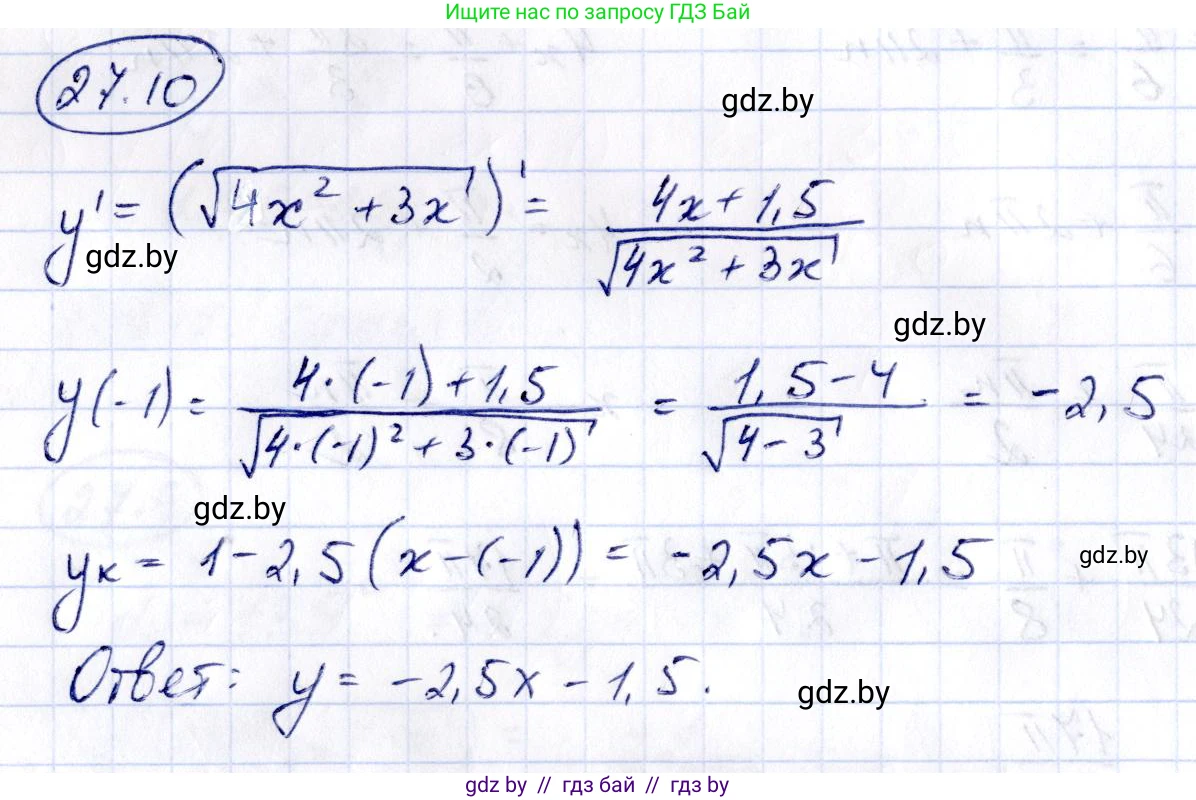 Ищите нас по запросу ГДЗ Бай
27.10
gdz.by
y' = (√(4x² + 3x))' = (4x + 1,5)/√(4x² + 3x)
gdz.by
gdz.by
y(-1) = (4·(-1) + 1,5)/√(4·(-1)² + 3·(-1)) = (1,5 - 4)/√(4 - 3) = -2,5
gdz.by
yк = 1 - 2,5(x - (-1)) = -2,5x - 1,5
gdz.by
Ответ: y = -2,5x - 1,5.
gdz.by
gdz by // гдз бай // gdz by